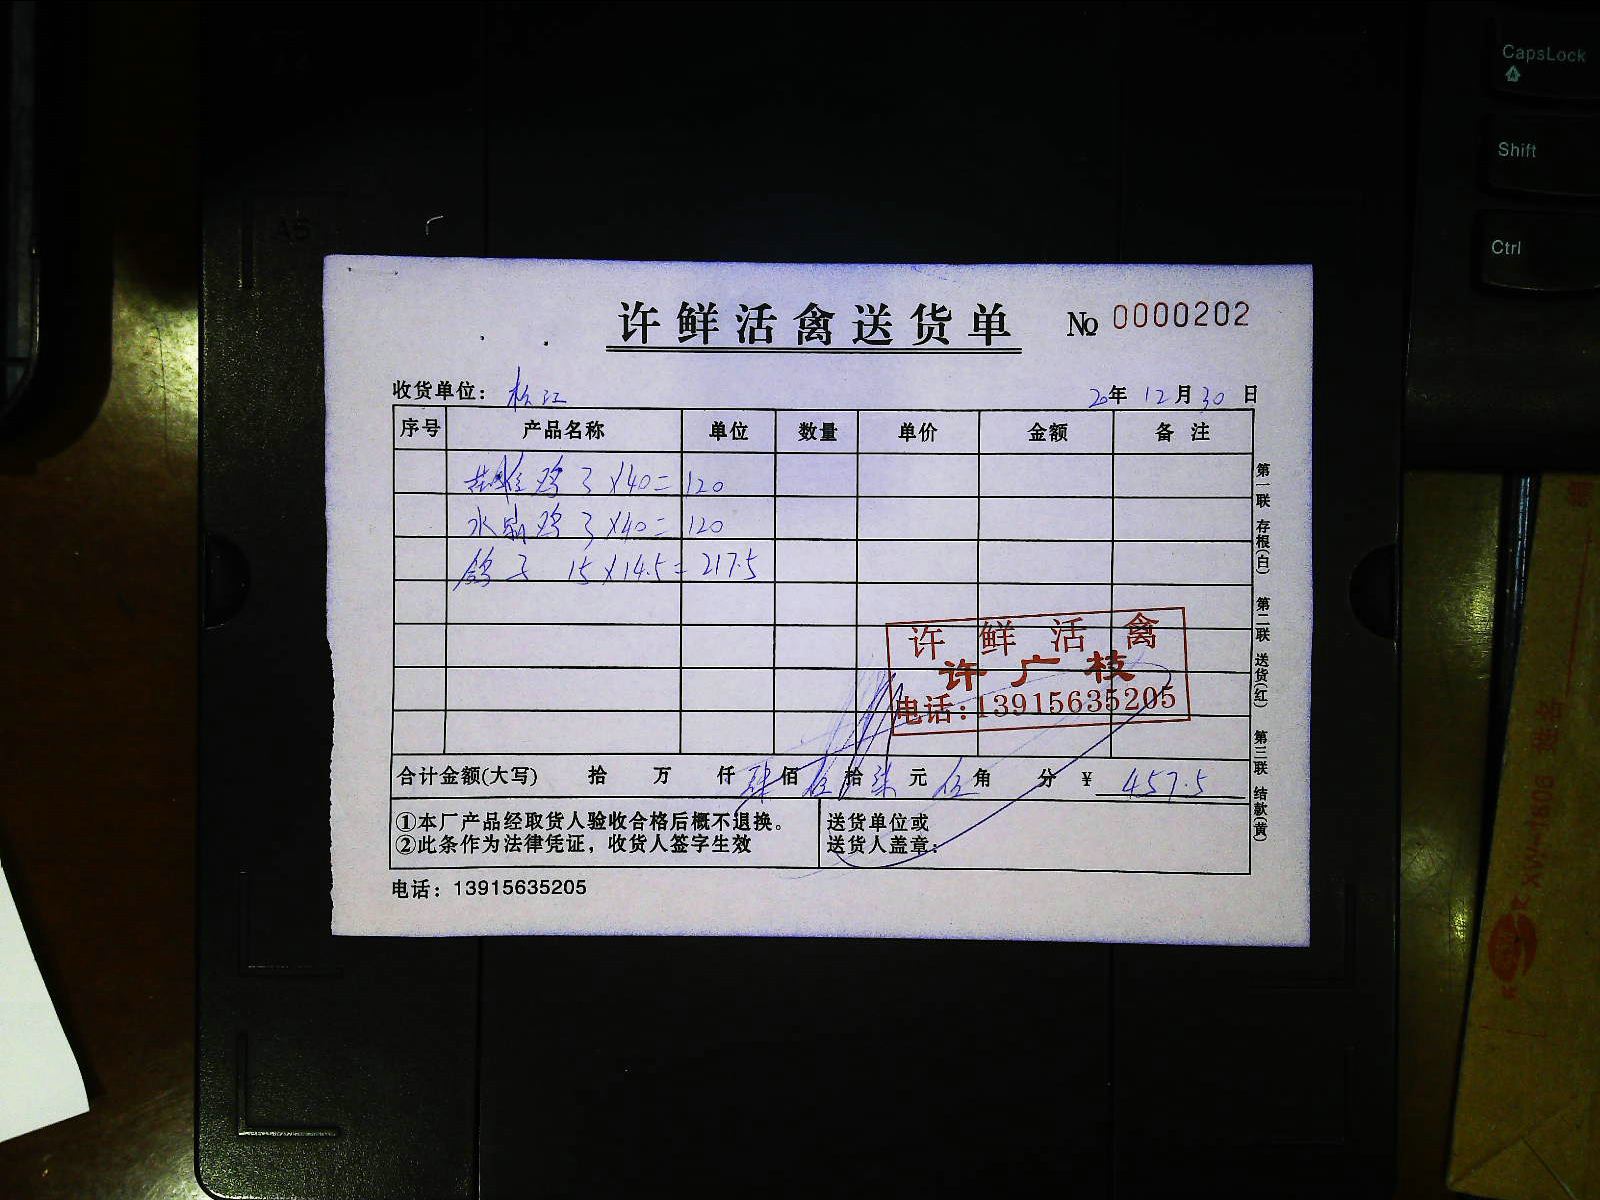 CapsLock
Shift
Ctrl
A5
许鲜活禽送货单 No 0000202
收货单位： 松江 20年 12月 30日
序号 产品名称 单位 数量 单价 金额 备注
鸡 3×40= 120
水 鸡 3×40= 120
鸽子 15×14.5= 217.5
许鲜活禽
许广枝
电话:13915635205
合计金额(大写) 拾 万 仟 肆佰 伍拾 柒元 伍角 分 ¥ 457.5
①本厂产品经取货人验收合格后概不退换。
②此条作为法律凭证，收货人签字生效
送货单位或
送货人盖章：
电话：13915635205
第一联 存根(白) 第二联 送货(红) 第三联 结款(黄)